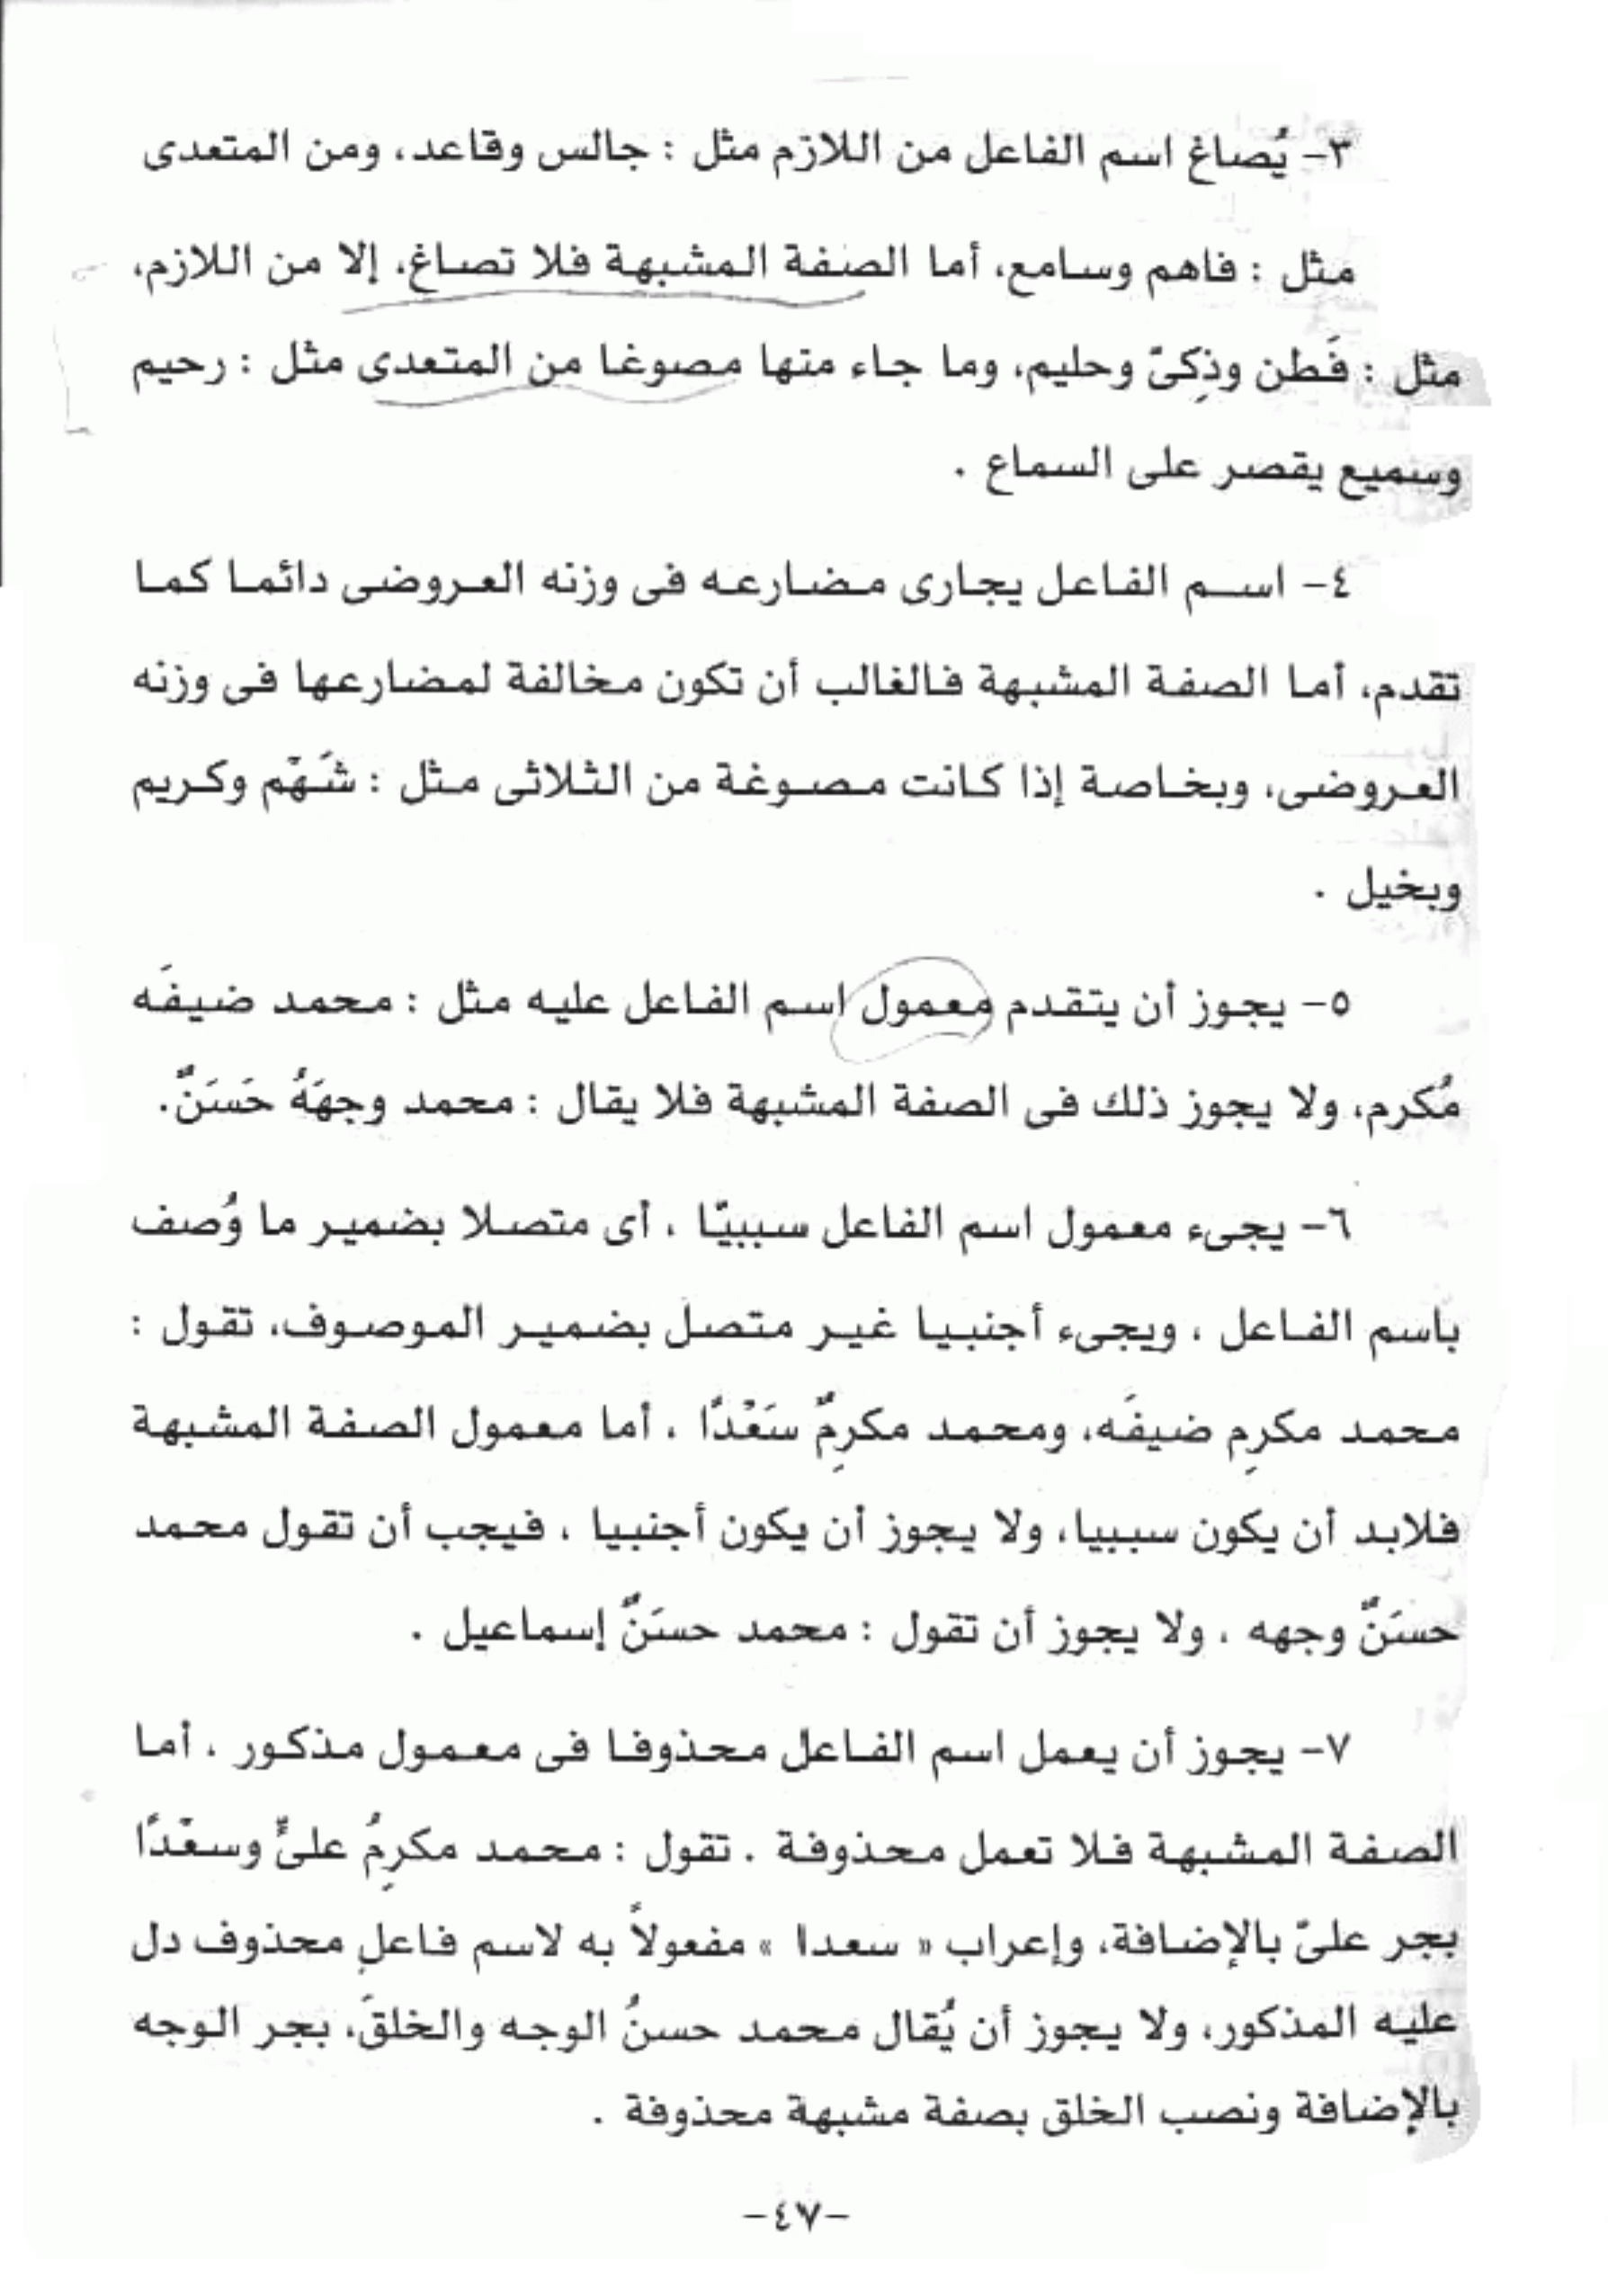 ٣- يُصاغ اسم الفاعل من اللازم مثل : جالس وقاعد، ومن المتعدى
مثل : فاهم وسامع، أما الصفة المشبهة فلا تصاغ، إلا من اللازم،
مثل : فَطن وذِكىّ وحليم، وما جاء منها مصوغا من المتعدى مثل : رحيم
وسميع يقصر على السماع .
٤- اسم الفاعل يجارى مضارعه فى وزنه العروضى دائما كما
تقدم، أما الصفة المشبهة فالغالب أن تكون مخالفة لمضارعها فى وزنه
العروضى، وبخاصة إذا كانت مصوغة من الثلاثى مثل : شَهْم وكريم
وبخيل .
٥- يجوز أن يتقدم معمول اسم الفاعل عليه مثل : محمد ضيفَه
مُكرم، ولا يجوز ذلك فى الصفة المشبهة فلا يقال : محمد وجهَهُ حَسَنٌ.
٦- يجىء معمول اسم الفاعل سببيّا ، أى متصلا بضمير ما وُصف
باسم الفاعل ، ويجىء أجنبيا غير متصل بضمير الموصوف، تقول :
محمد مكرِم ضيفَه، ومحمد مكرِمٌ سَعْدًا ، أما معمول الصفة المشبهة
فلابد أن يكون سببيا، ولا يجوز أن يكون أجنبيا ، فيجب أن تقول محمد
حسَنٌ وجهه ، ولا يجوز أن تقول : محمد حسَنٌ إسماعيل .
٧- يجوز أن يعمل اسم الفاعل محذوفا فى معمول مذكور ، أما
الصفة المشبهة فلا تعمل محذوفة . تقول : محمد مكرِمُ علىٍّ وسعْدًا
بجر علىّ بالإضافة، وإعراب « سعدا » مفعولاً به لاسم فاعلٍ محذوف دل
عليه المذكور، ولا يجوز أن يُقال محمد حسنُ الوجه والخلقَ، بجر الوجه
بالإضافة ونصب الخلق بصفة مشبهة محذوفة .
-٤٧-